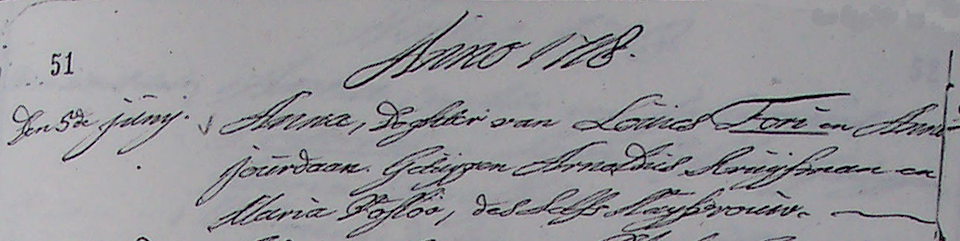 51
Anno 1718.
Den 5de Junij. Anna, Doghter van Louies Fori en Anna
Jourdaan. Getuygen Arnoldus Kruÿsman en
Maria, des Selfs Huysvrouw.